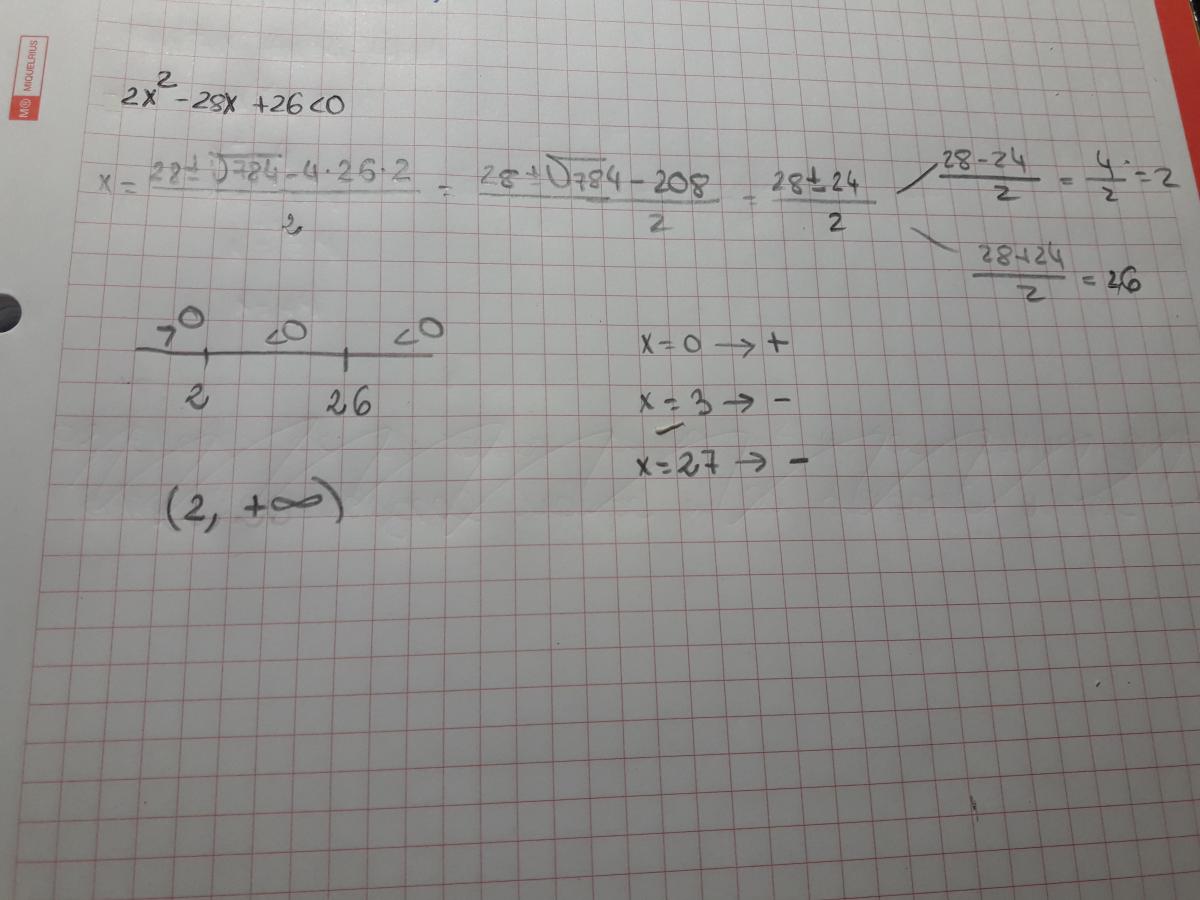 M® MIQUELRIUS
2x² - 28x + 26 < 0
x = (28 ± √784 - 4·26·2)/2 = (28 ± √784 - 208)/2 = (28 ± 24)/2
(28 - 24)/2 = 4/2 = 2
(28 + 24)/2 = 26
>0 <0 <0
2 26
x = 0 → +
x = 3 → -
x = 27 → -
(2, +∞)